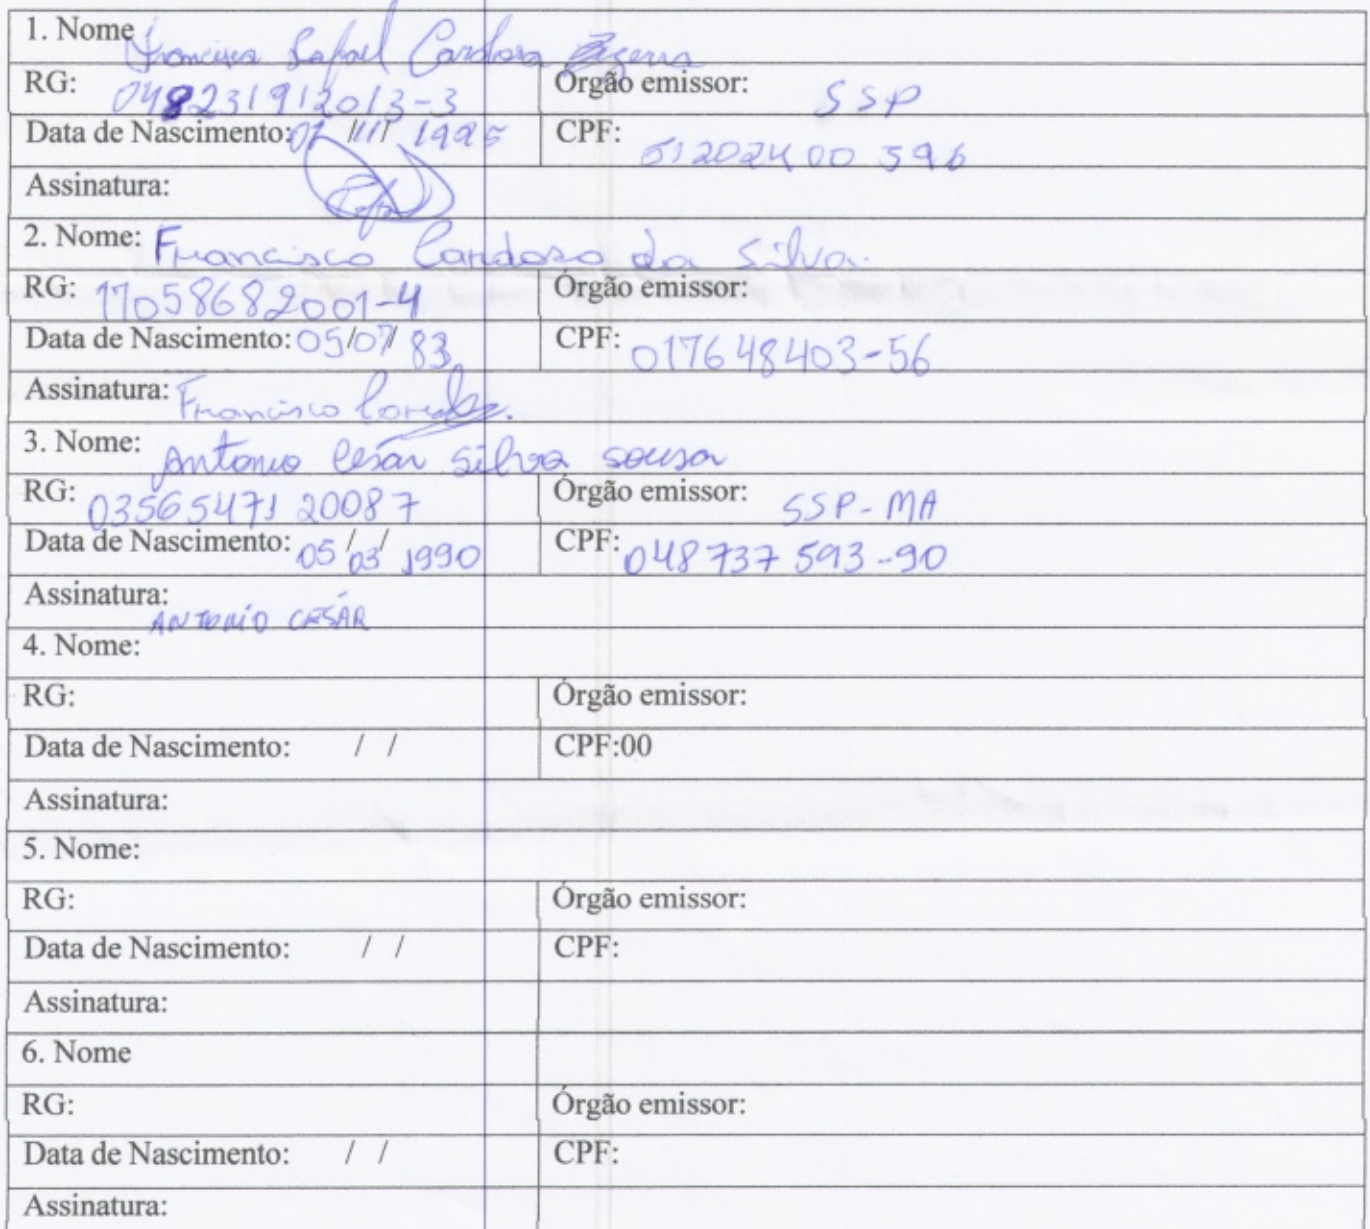 1. Nome Francisco Rafael Cardoso Bezerra
RG: 048231912013-3 Órgão emissor: SSP
Data de Nascimento: 07/11/1995 CPF: 61202400 396
Assinatura: Rafael
2. Nome: Francisco Cardoso da Silva.
RG: 11058682001-4 Órgão emissor:
Data de Nascimento: 05/07/83 CPF: 017648403-56
Assinatura: Francisco Cardoso.
3. Nome: Antonio César Silva sousa
RG: 0356547120087 Órgão emissor: SSP-MA
Data de Nascimento: 05/03/1990 CPF: 048737593-90
Assinatura: ANTONIO CESÁR
4. Nome:
RG: Órgão emissor:
Data de Nascimento: / / CPF:00
Assinatura:
5. Nome:
RG: Órgão emissor:
Data de Nascimento: / / CPF:
Assinatura:
6. Nome
RG: Órgão emissor:
Data de Nascimento: / / CPF:
Assinatura: